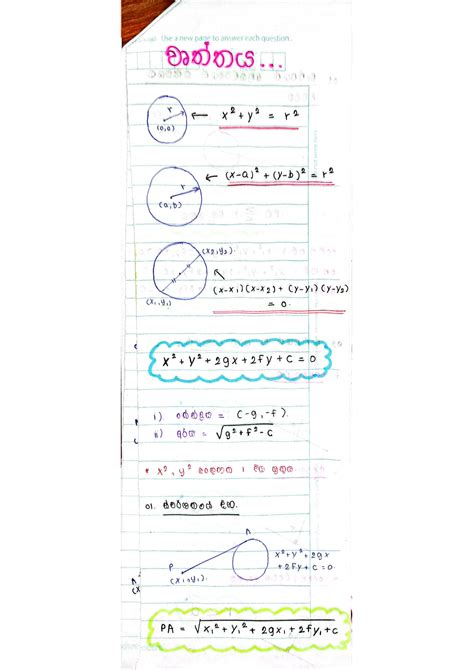 Use a new page to answer each question.
වෘත්තය...
r
(0,0)
← x² + y² = r²
r
(a,b)
← (x-a)² + (y-b)² = r²
(x₂,y₂).
(x₁,y₁)
(x-x₁)(x-x₂) + (y-y₁)(y-y₂)
= 0.
x² + y² + 2gx + 2fy + c = 0
i) කේන්ද්‍රය = (-g,-f)
ii) අරය = √g² + f² - c
* x², y² සංගුණක 1 විය යුතුය
01. ස්පර්ශකයේ දිග.
A
P
(x₁,y₁).
x² + y² + 2gx
+ 2fy + c = 0.
PA = √x₁² + y₁² + 2gx₁ + 2fy₁ + c